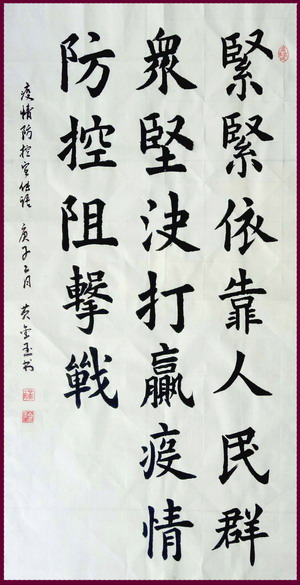 緊緊依靠人民群
衆堅決打贏疫情
防控阻擊戰
疫情防控宣传语 庚子二月 黄金玉书